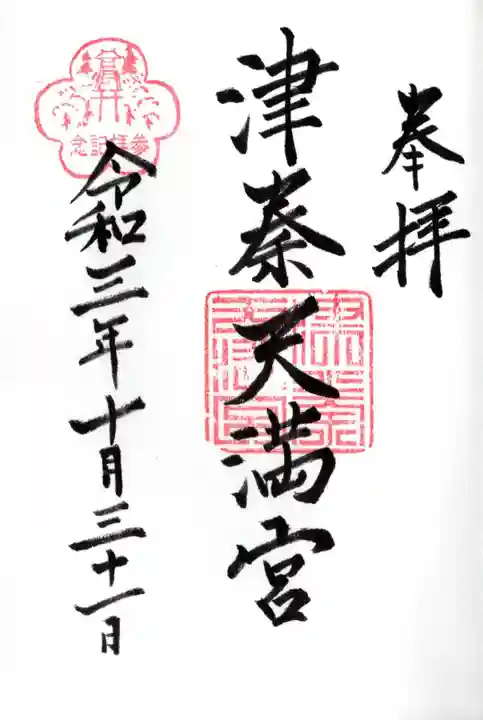 奉拝
津秦天満宮
令和三年十月三十一日
参拝記念